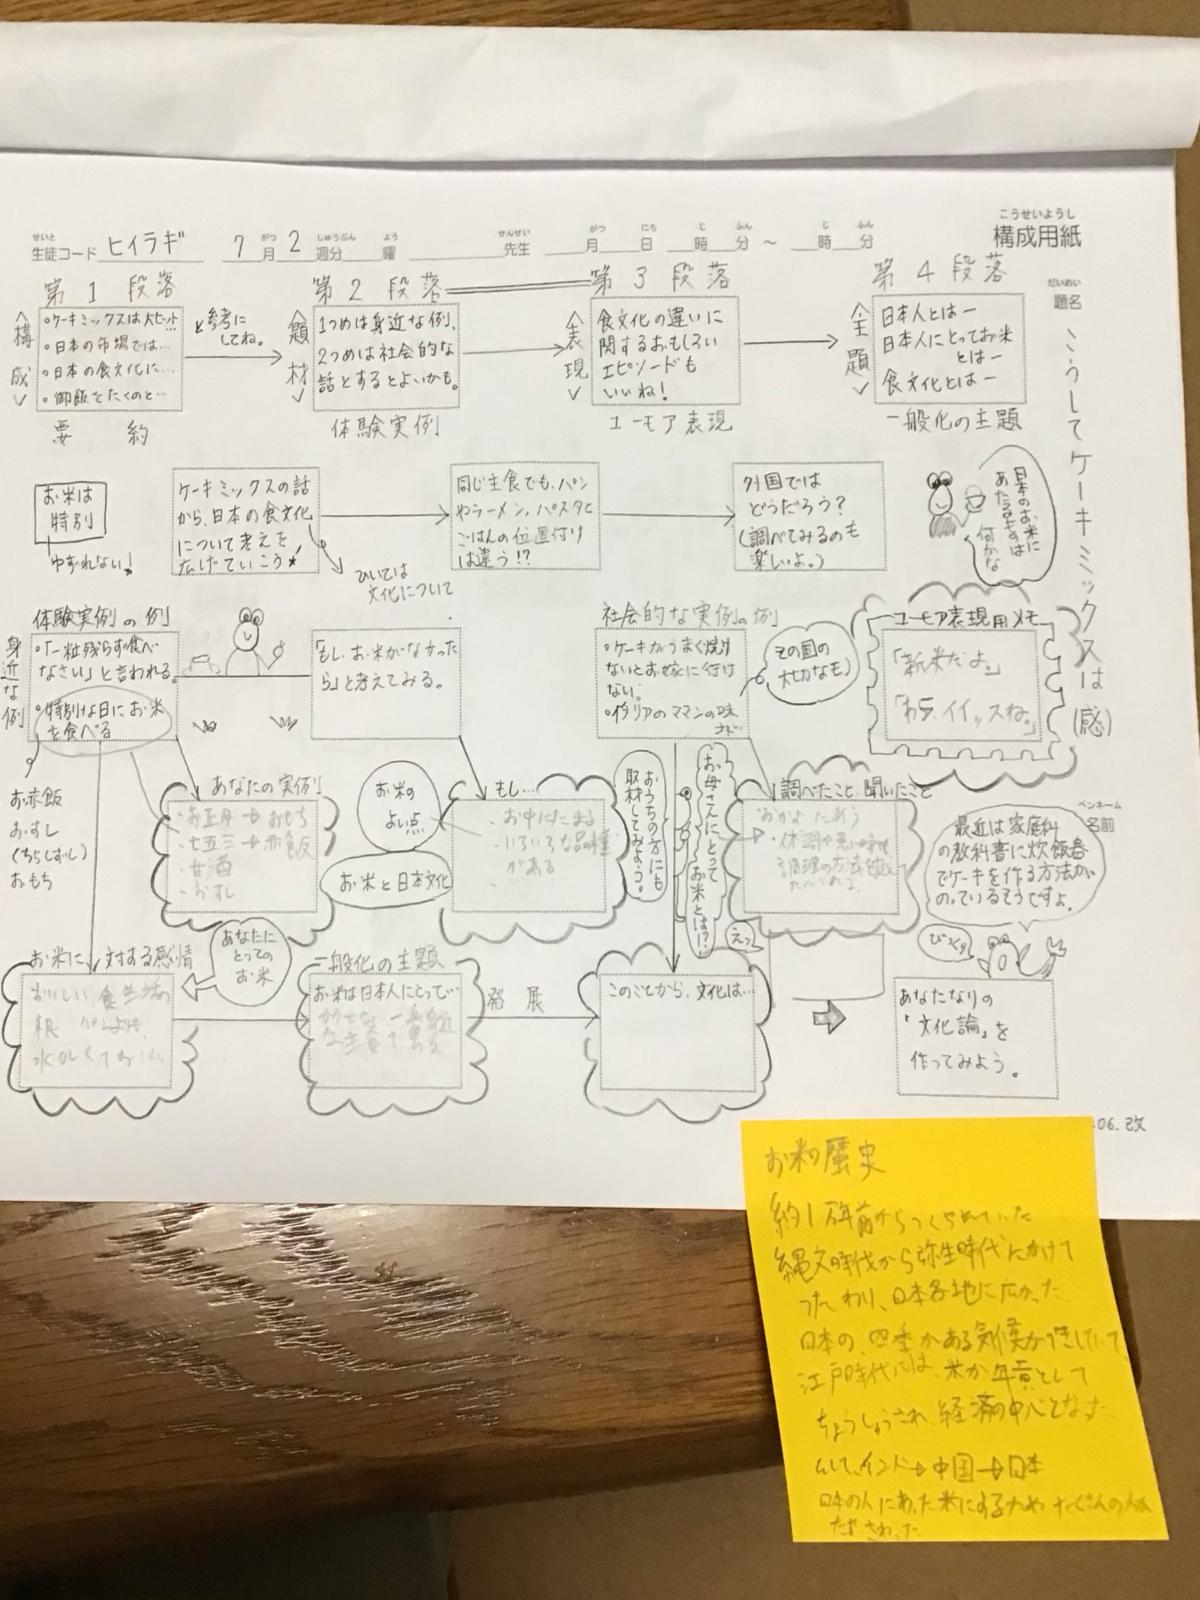 こうせいようし
構成用紙
せいと
生徒コード ヒイラギ 7月2週分 曜 先生 月 日 時 分 ～ 時 分
がつ しゅうぶん よう せんせい がつ にち じ ふん じ ふん
だいめい
題名
こうしてケーキミックスは(感)
第1段落
＜構成＞
・ケーキミックスは大ヒット
・日本の市場では…
・日本の食文化に…
・御飯をたくのと…
要約
と参考に
してね。
第2段落
＜題材＞
1つめは身近な例、
2つめは社会的な
話とするとよいかも。
体験実例
第3段落
＜表現＞
食文化の違いに
関するおもしろい
エピソードも
いいね!
ユーモア表現
第4段落
＜主題＞
日本人とはー
日本人にとってお米
とはー
食文化とはー
一般化の主題
お米は
特別
ゆずれない!
ケーキミックスの話
から、日本の食文化
について考えを
広げていこう!
ひいては
文化について
同じ主食でも、パン
やラーメン、パスタと
ごはんの位置付け
は違う!?
外国では
どうだろう?
(調べてみるのも
楽しいよ。)
日本のお米に
あたるものは
何かな
体験実例の例
身近な例
・「一粒残らず食べ
なさい」と言われる。
・特別な日にお米
を食べる
お赤飯
おすし
(ちらしずし)
おもち
「もし、お米がなかった
ら」と考えてみる。
社会的な実例の例
・ケーキがうまく焼け
ないとお嫁に行け
ない。
・イタリアのママンの味
その国の
大切なもの
ユーモア表現用メモ
「新米だよ。」
イイッスね。」
あなたの実例
・お正月→おもち
・七五三→赤飯
・甘酒
・おすし
お米の
よい点
お米と日本文化
もし…
・お中にたまる
・いろいろな品種
がある
おうちの方にも
取材してみよう。
お母さんにとって
お米とは!?
えっ
調べたこと、聞いたこと
ペンネーム
名前
最近は家庭科
の教科書に炊飯器
でケーキを作る方法が
のっているそうですよ。
びっくり
お米に対する感情
あなたに
とっての
お米
おいしい、食生活の
一般化の主題
お米は日本人にとって…
発展
このことから、文化は…
あなたなりの
「文化論」を
作ってみよう。
06.改
お米の歴史
約1万年前からつくられていた
縄文時代から弥生時代にかけて
つたわり、日本各地に広がった
日本の、四季がある気候がてきしていて、
江戸時代には、米が年貢として
ちょうしゅうされ、経済の中心となった
インド→中国→日本
日本の人にあった米にする為や、たくさんの人が
たずさわった